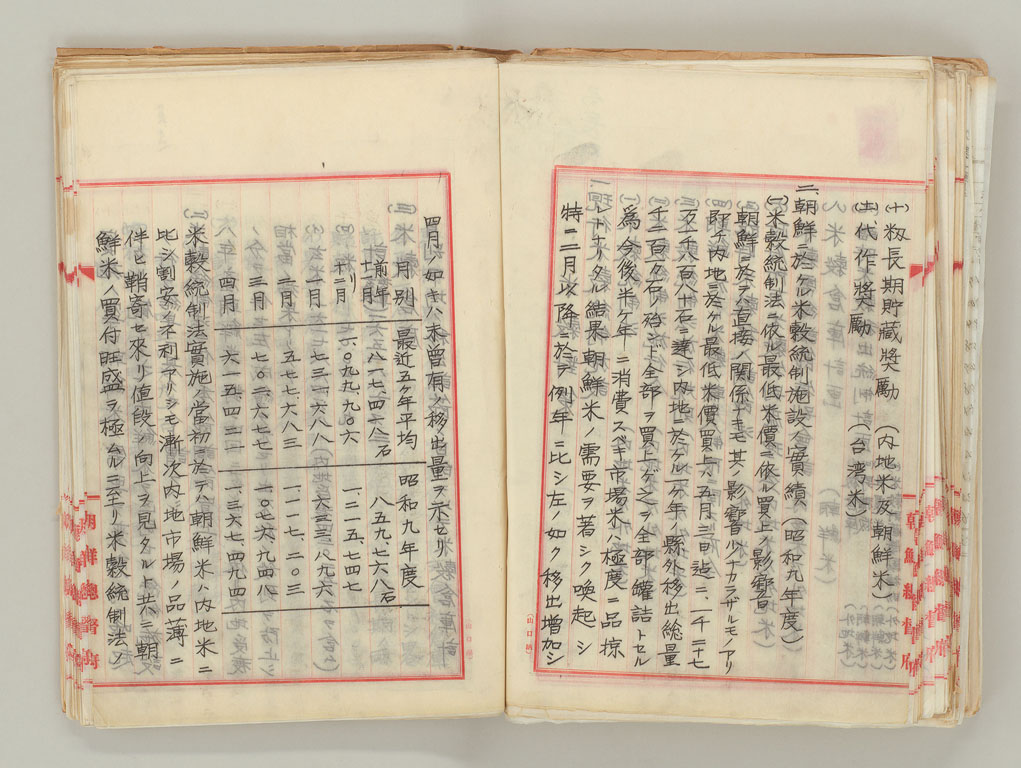 (十)籾長期貯蔵奬勵 (内地米及朝鮮米)
(十一)代作奬勵 (台湾米)
二、朝鮮ニ於ケル米穀統制施設ノ實績(昭和九年度)
(一)米穀統制法ニ依ル最低米價ニ依ル買上ノ影響
朝鮮ニ於テハ直接ノ関係ナキモ其ノ影響少ナカラザルモノアリ
即チ内地ニ於ケル最低米價買上ハ五月三回迠ニ、一千二十七
万千八百八十石ニ達シ内地ニ於ケル一ケ年ノ縣外移出総量
千二百万石殆ンド全部ヲ買上ゲ之ヲ全部罐詰トセル
爲今後半ケ年ニ消費スベキ市場米ハ極度ニ品掠
レトナリタル結果朝鮮米ノ需要ヲ著シク喚起シ
特ニ二月以降ニ於テ例年ニ比シ左ノ如ク移出増加シ
四月ノ如キハ未曾有ノ移出量ヲ示セリ
月別 最近五ケ年平均 昭和九年度
前年十一月 八一七、四六八石 八五九、七六八石
十二月 六〇九、九〇六 一、二一五、七四七
一月 七三一、六八八 六三三、八九六
二月 五七七、六八三 一、一一七、二〇三
三月 七〇二、六七七 一、〇七六、九四八
四月 六一五、四二一 一、三六七、四九四
(二)米穀統制法實施ノ當初ニ於テハ朝鮮米ハ内地米ニ
比シ割安ノ不利アリシモ漸次内地市場ノ品薄ニ
伴ヒ鞘寄セ來リ値段ノ向上ヲ見タルト共ニ朝
鮮米ノ買付旺盛ヲ極ムルニ至リ米穀統制法ノ
朝鮮總督府
朝鮮總督府